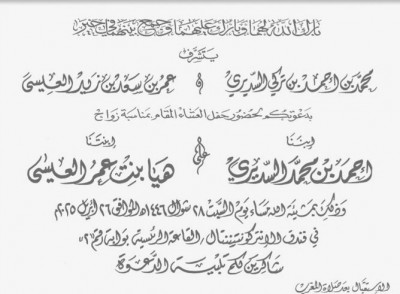 بارك الله لهما وبارك عليهما وجمع بينهما في خير
يتشرف
محمد بن احمد بن تركي السديري و عمر بن سعد بن زيد العليسي
بدعوتكم لحضور حفل العشاء المقام بمناسبة زواج
ابننا ابنتنا
احمد بن محمد السديري على هيا بنت عمر العليسي
وذلك بمشيئة الله مساء يوم السبت ٢٨ شوال ١٤٤٦هـ الموافق ٢٦ ابريل ٢٠٢٥م
في فندق الانتركونتيننتال "القاعة الرئيسية بوابة رقم ٢"
شاكرين لكم تلبية الدعوة
الاستقبال بعد صلاة المغرب